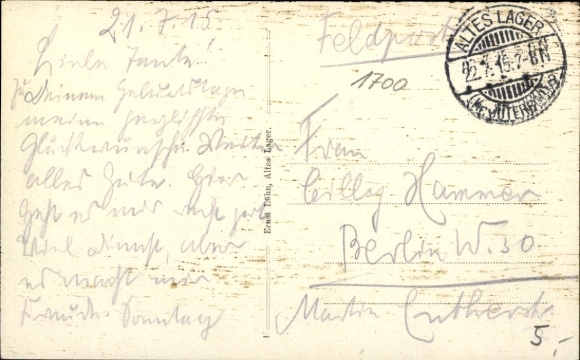 21.7.15.
Liebe Tante!
Zu Deinem Geburtstage
meine herzlichsten
Glückwünsche. Weiter
alles Gute. Hier
geht es mir recht gut.
Viel Dienst, aber
es macht mir
Freude. Sonntag
Ernst Lühn, Altes Lager.
Feldpost
1700
ALTES LAGER
22.7.15.7-8N
(Kr. JÜTERBOG)
Frau
Hammer
Berlin W. 30
Martin Lutherstr.
5,-